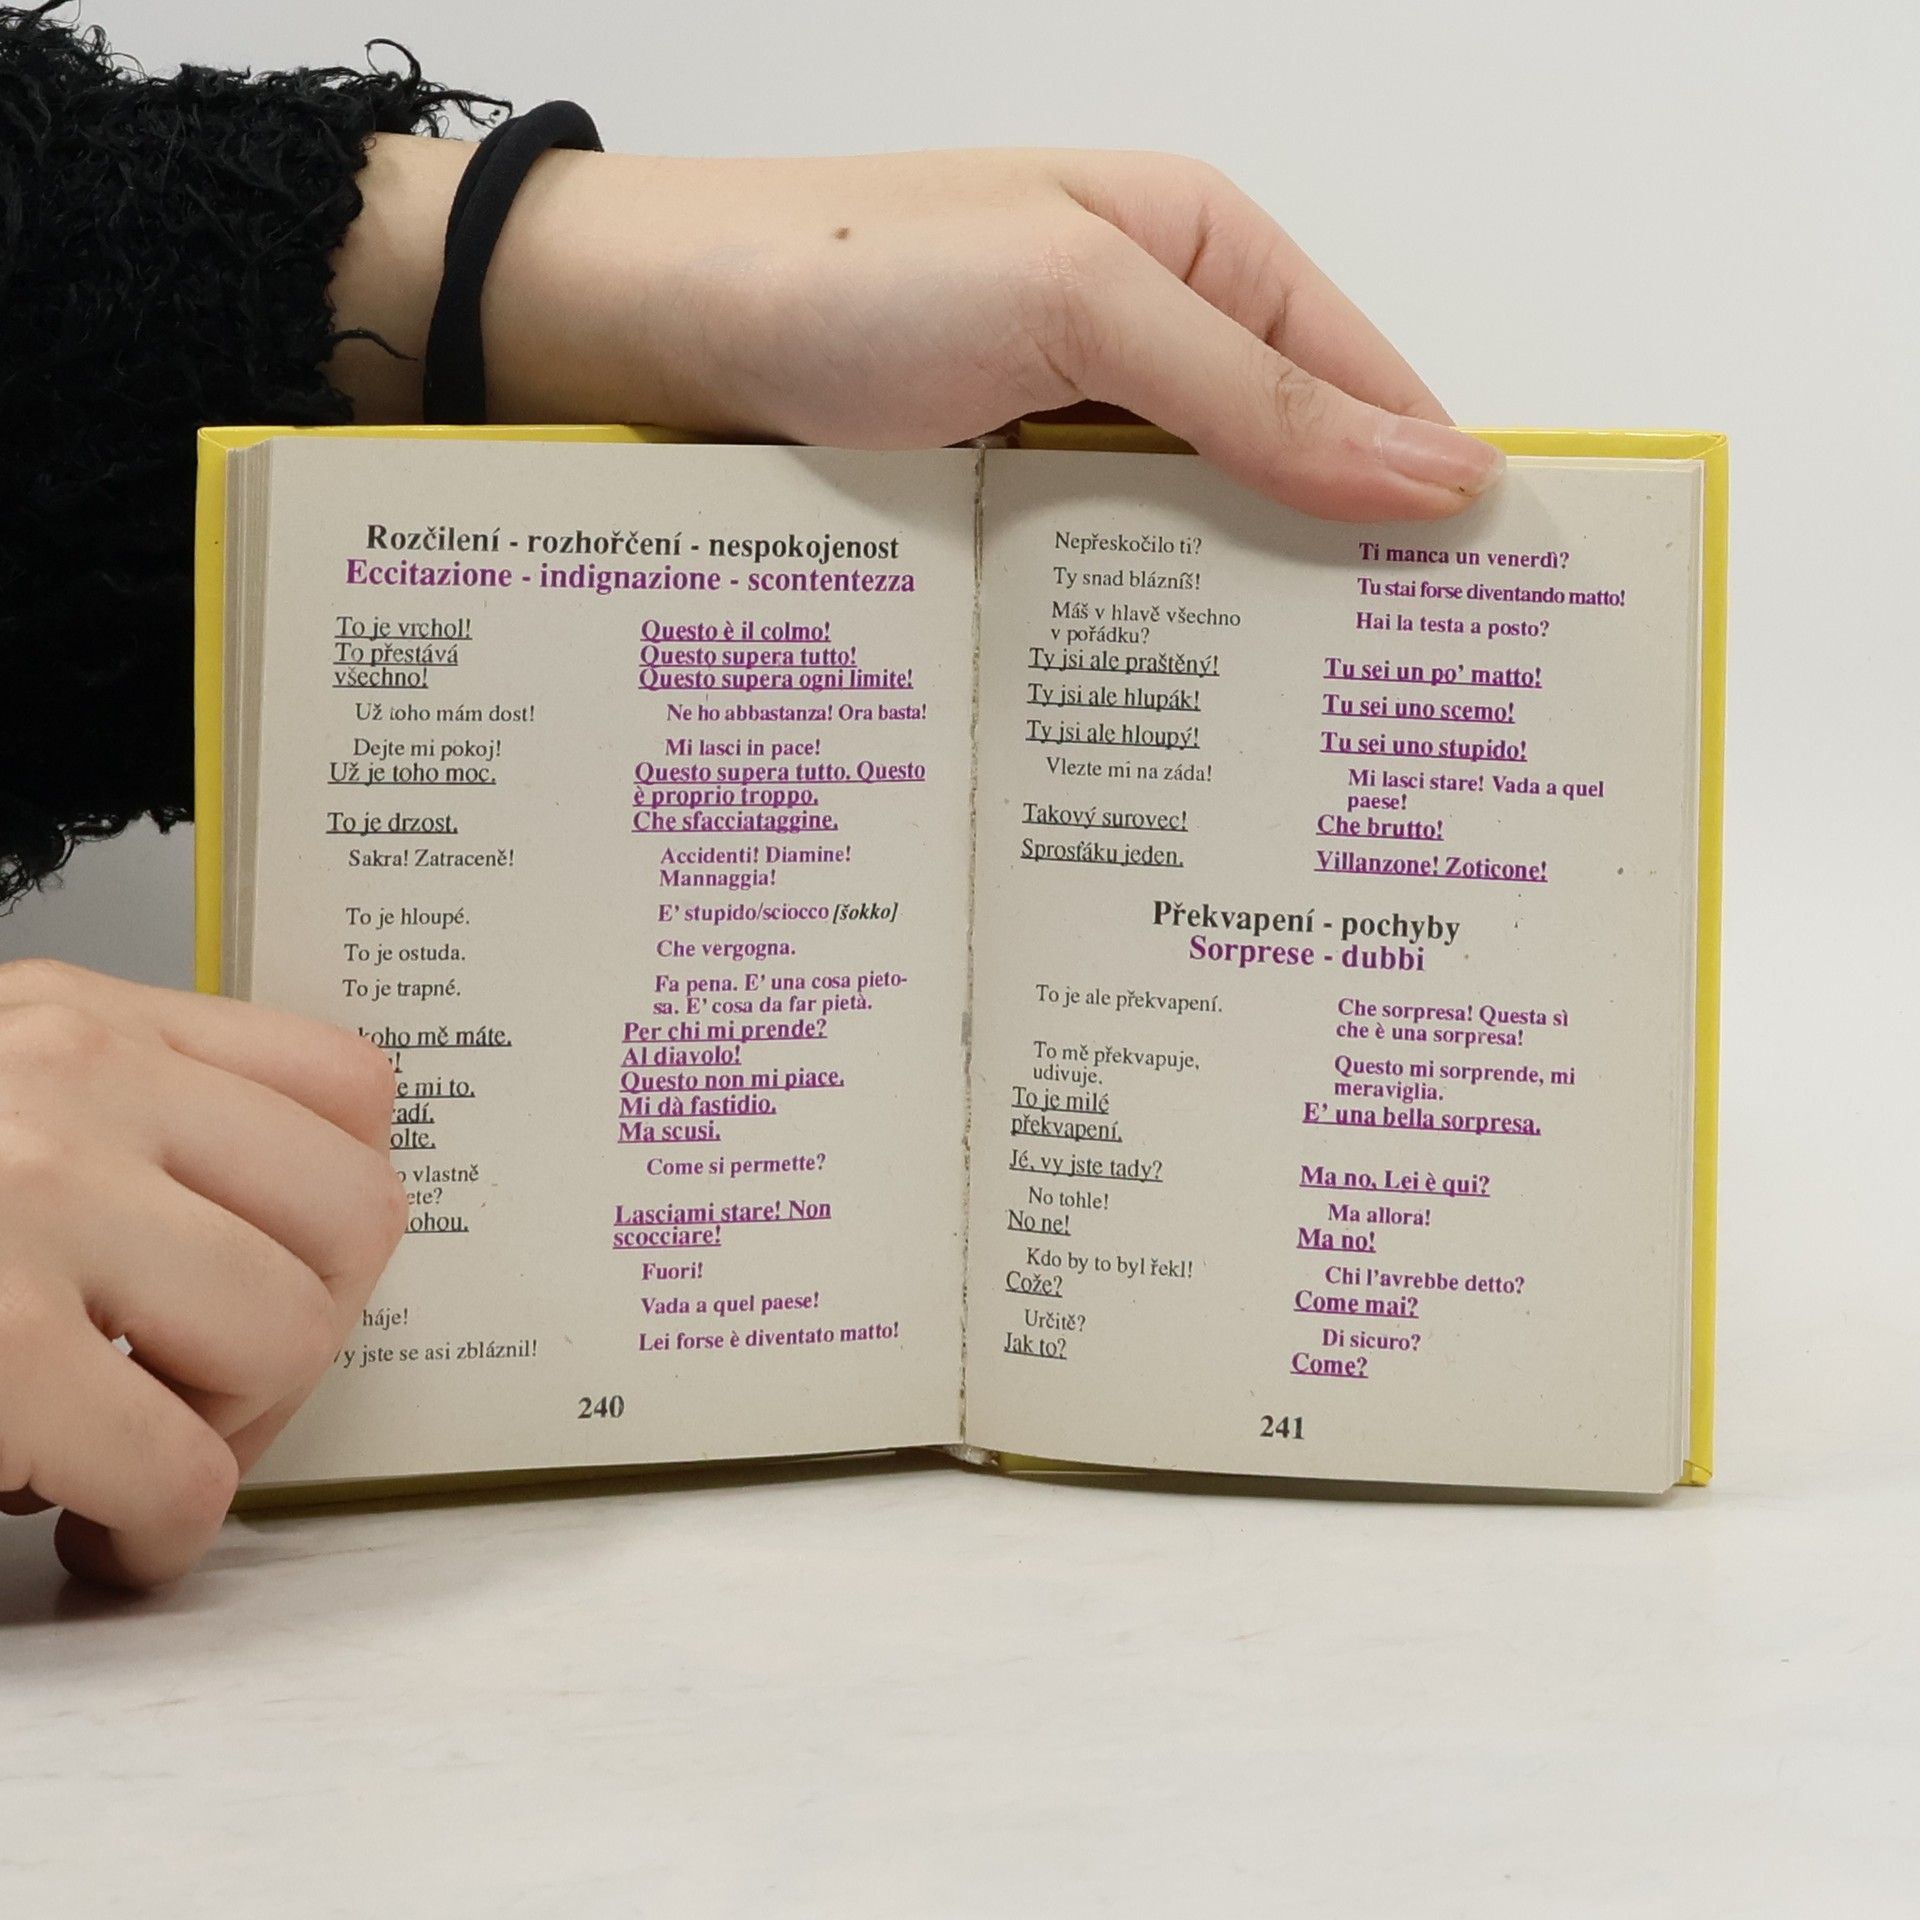 Rozčilení - rozhořčení - nespokojenost
Eccitazione - indignazione - scontentezza
To je vrchol! Questo è il colmo!
To přestává Questo supera tutto!
všechno! Questo supera ogni limite!
Už toho mám dost! Ne ho abbastanza! Ora basta!
Dejte mi pokoj! Mi lasci in pace!
Už je toho moc. Questo supera tutto. Questo
è proprio troppo.
To je drzost. Che sfacciataggine.
Sakra! Zatraceně! Accidenti! Diamine!
Mannaggia!
To je hloupé. E' stupido/sciocco [šokko]
To je ostuda. Che vergogna.
To je trapné. Fa pena. E' una cosa pieto-
sa. E' cosa da far pietà.
koho mě máte. Per chi mi prende?
Al diavolo!
mi to. Questo non mi piace.
Mi dà fastidio.
Ma scusi.
vlastně Come si permette?
Lasciami stare! Non
scocciare!
Fuori!
háje! Vada a quel paese!
jste se asi zbláznil! Lei forse è diventato matto!
240
Nepřeskočilo ti? Ti manca un venerdì?
Ty snad blázníš! Tu stai forse diventando matto!
Máš v hlavě všechno Hai la testa a posto?
v pořádku?
Ty jsi ale praštěný! Tu sei un po' matto!
Ty jsi ale hlupák! Tu sei uno scemo!
Ty jsi ale hloupý! Tu sei uno stupido!
Vlezte mi na záda! Mi lasci stare! Vada a quel
paese!
Takový surovec! Che brutto!
Sprosťáku jeden. Villanzone! Zoticone!
Překvapení - pochyby
Sorprese - dubbi
To je ale překvapení. Che sorpresa! Questa sì
che è una sorpresa!
To mě překvapuje, Questo mi sorprende, mi
udivuje. meraviglia.
To je milé E' una bella sorpresa.
překvapení.
Jé, vy jste tady? Ma no, Lei è qui?
No tohle! Ma allora!
No ne! Ma no!
Kdo by to byl řekl! Chi l'avrebbe detto?
Cože? Come mai?
Určitě? Di sicuro?
Jak to? Come?
241